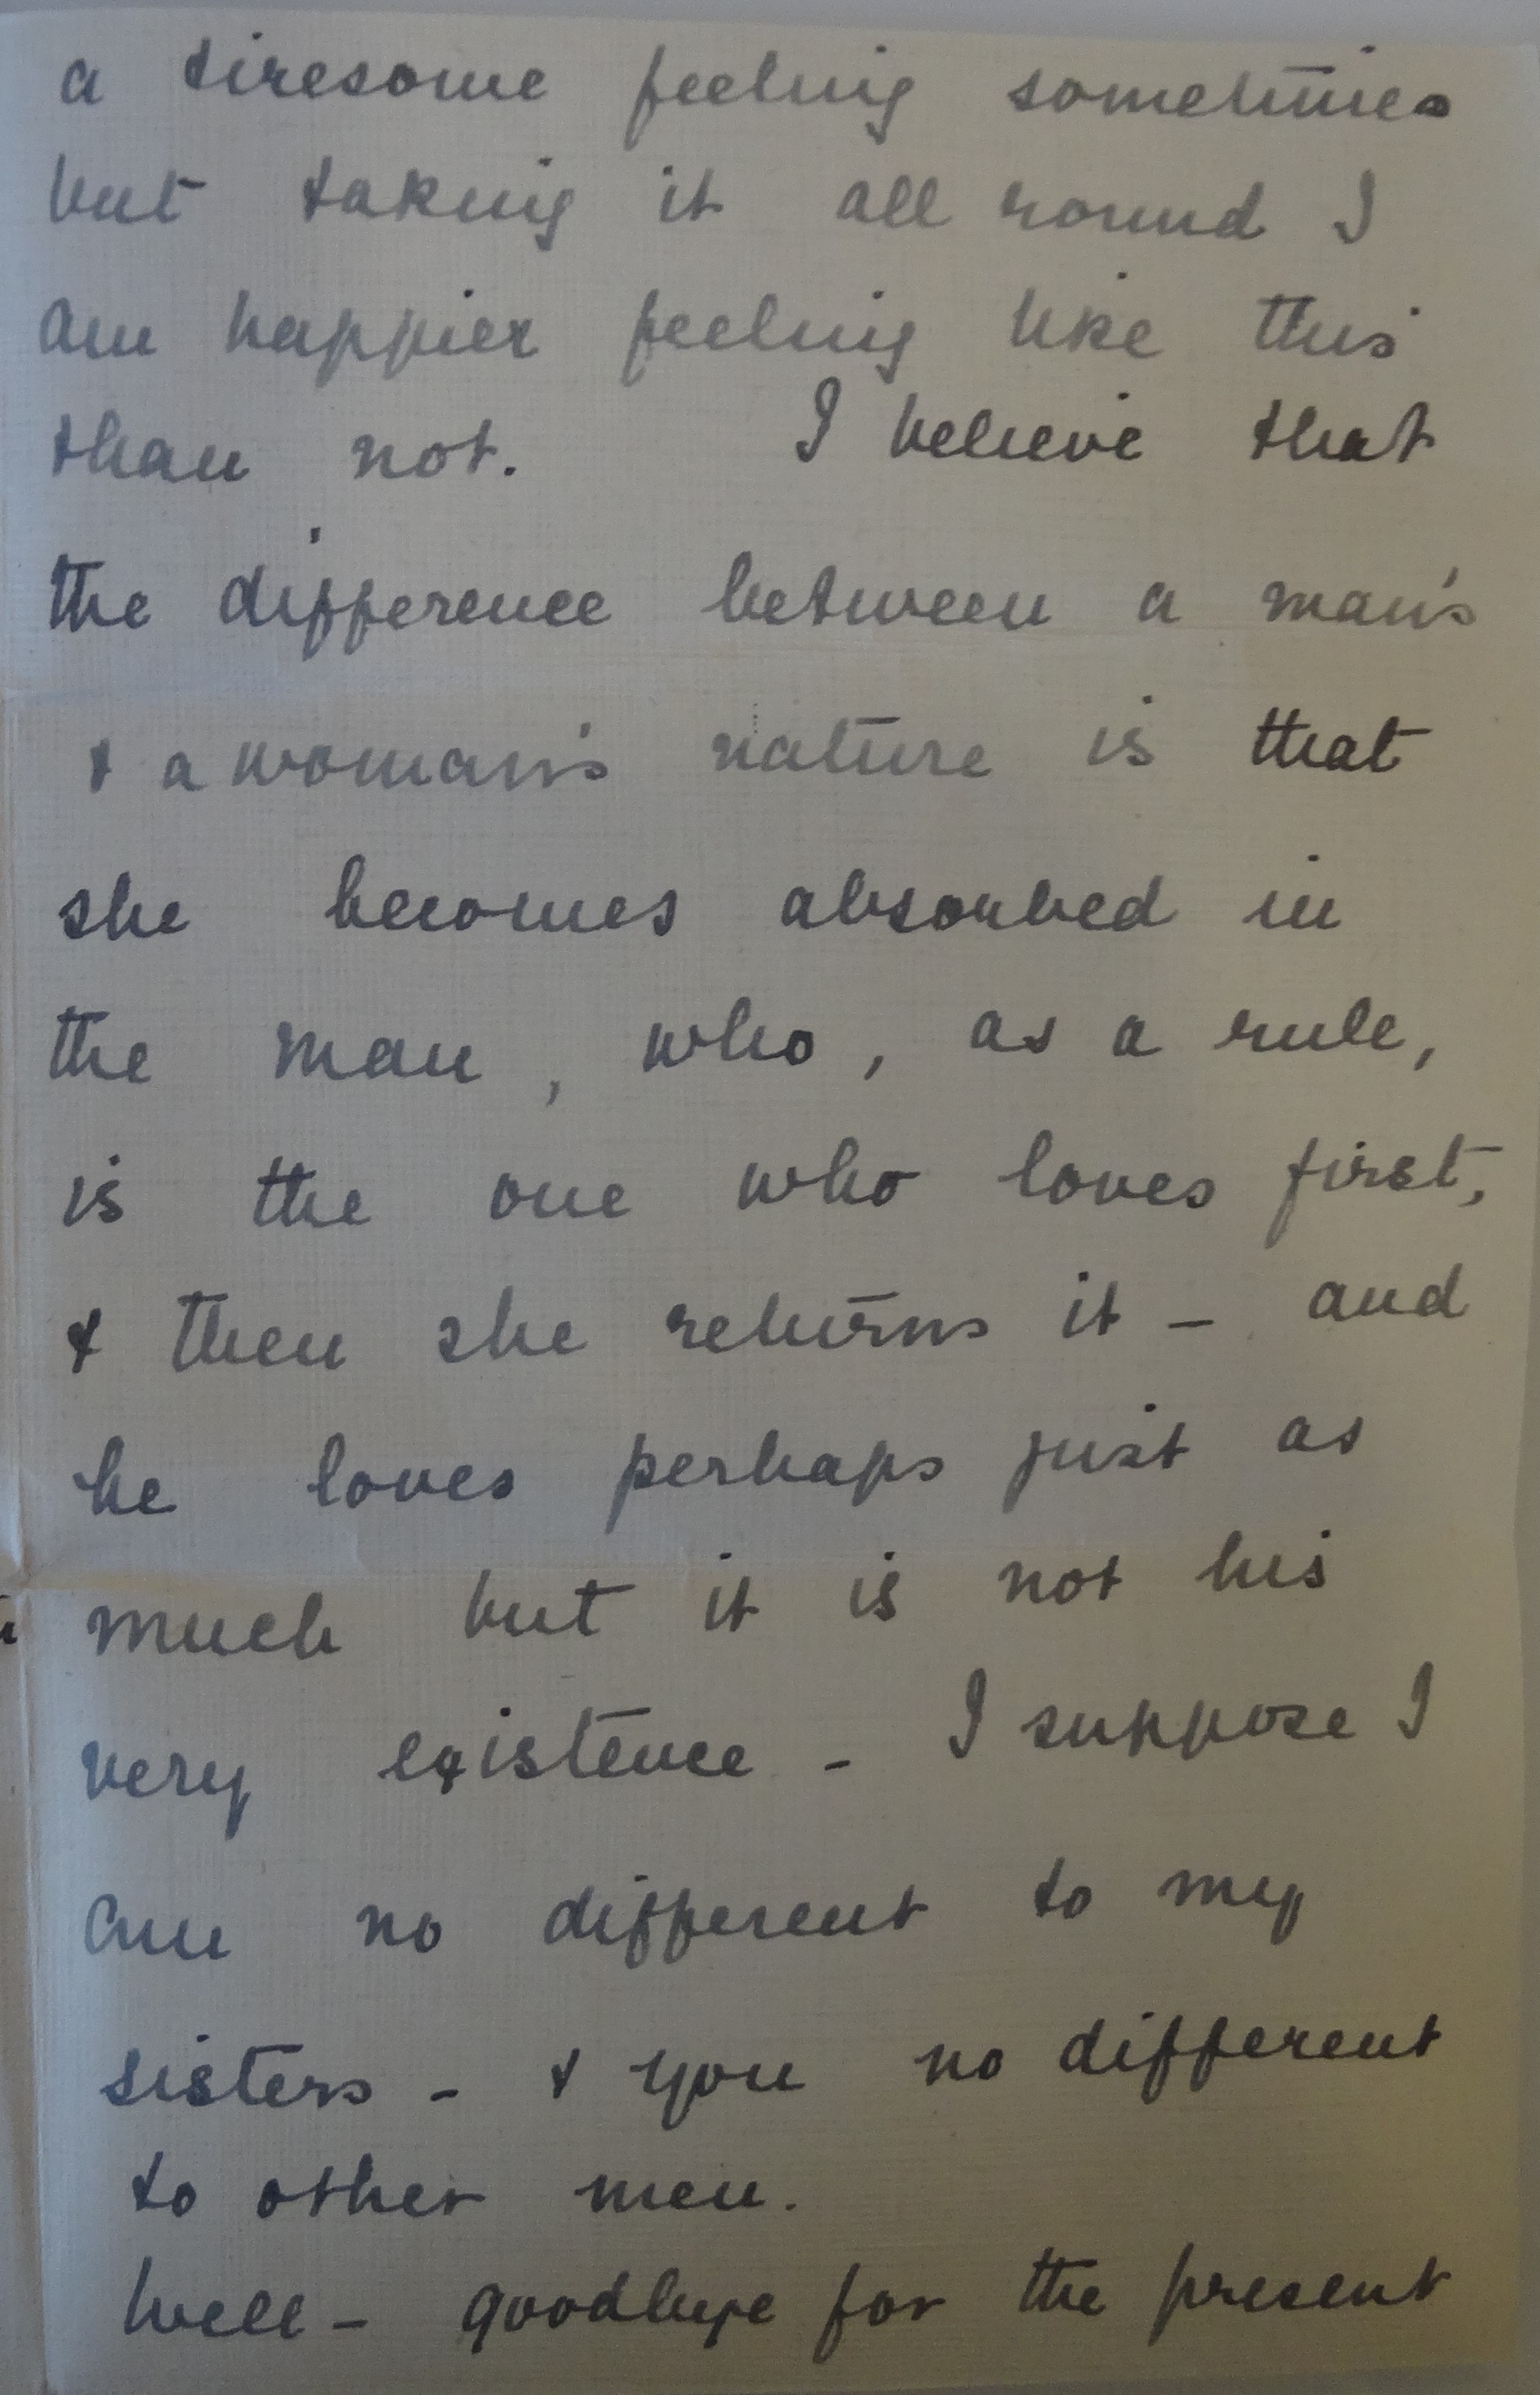 a tiresome feeling sometimes
but taking it all round I
am happier feeling like this
than not. I believe that
the difference between a man's
& a woman's nature is that
she becomes absorbed in
the man, who, as a rule,
is the one who loves first,
& then she returns it - and
he loves perhaps just as
much but it is not his
very existence - I suppose I
am no different to my
sisters - & you no different
to other men.
Well - goodbye for the present